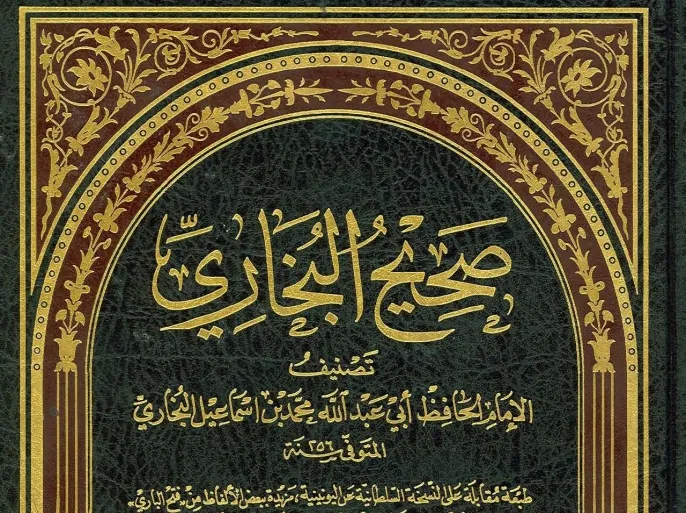 صَحِيحُ البُخَارِيِّ
تَصْنِيفُ
الإمَامِ الحَافِظْ أبي عَبْد اللَّه محمَّد بْن اسْمَاعيل البُخَاريّ
المتَوفّى سَنَة ٢٥٦
طبعَة مُقَابلَة عَلى النّسخَة السّلطانيّة عَن اليُونينيّة، مَزيدة ببَعض الألفاظ مِنْ «فتح البَاري»